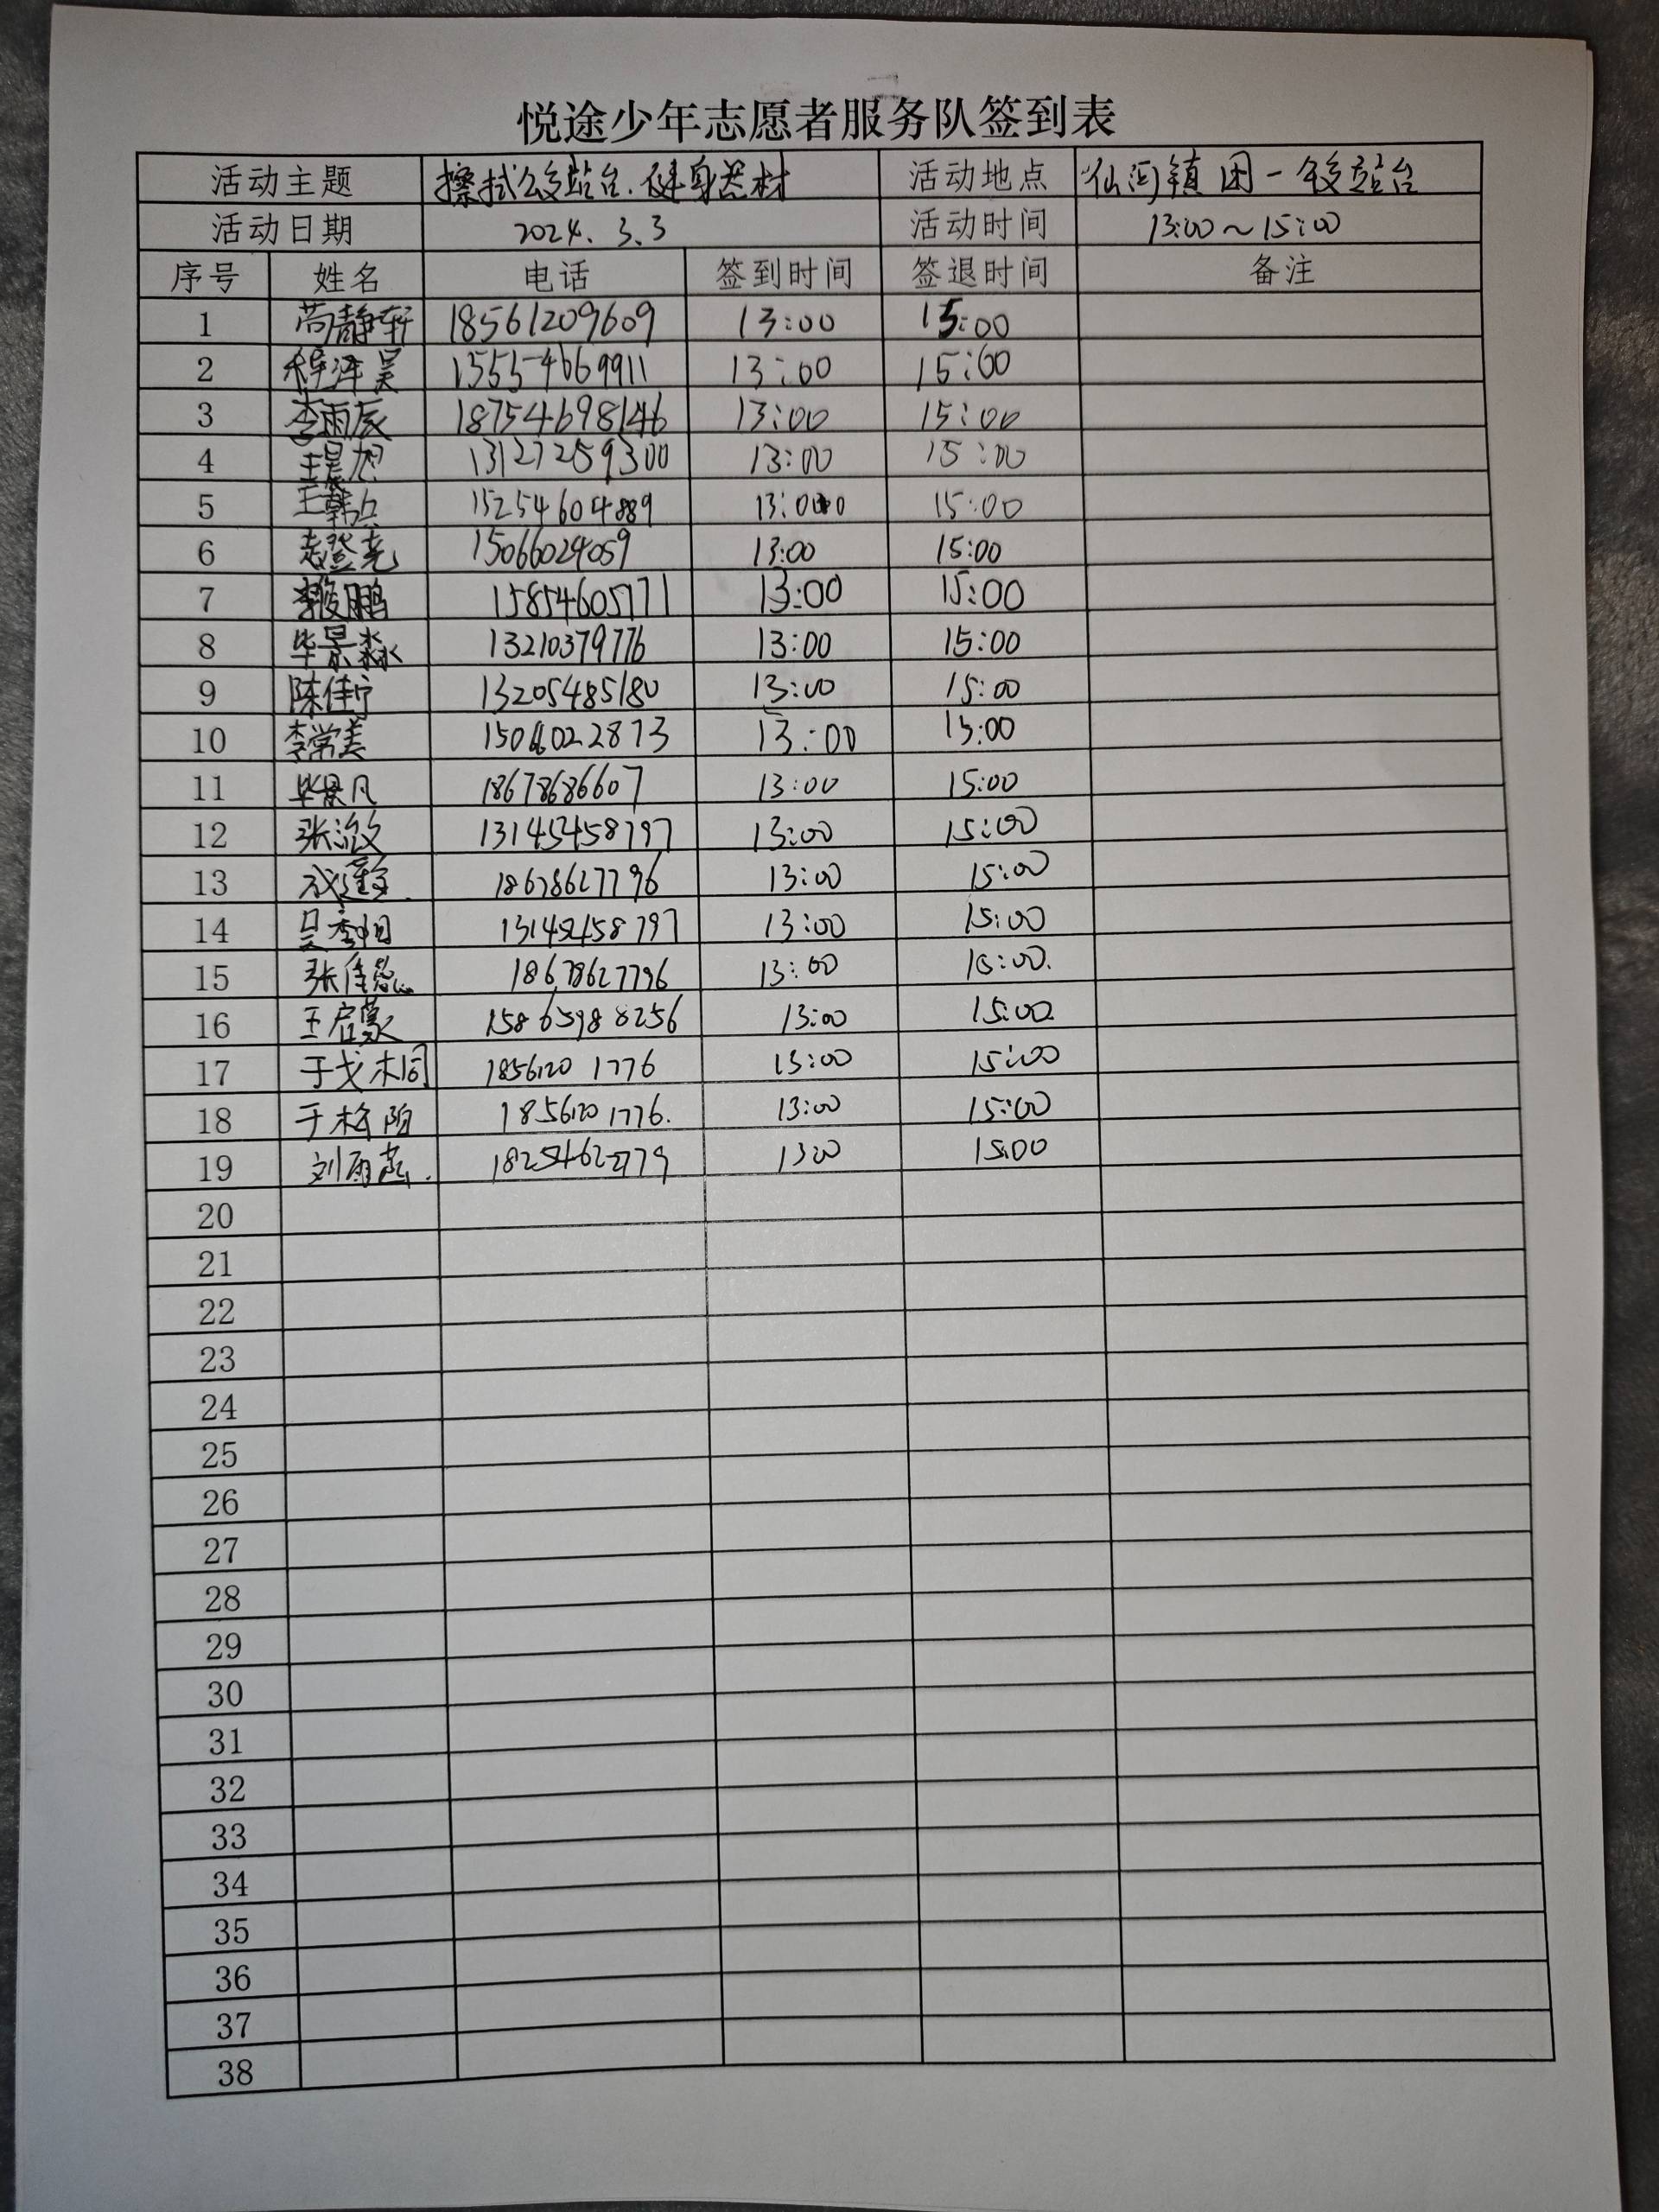 悦途少年志愿者服务队签到表
活动主题 擦拭公交站台.健身器材 活动地点 仙河镇 一 公交站台
活动日期 2024.3.3 活动时间 13:00～15:00
序号 姓名 电话 签到时间 签退时间 备注
1 静轩 18561209609 13:00 15:00
2 13:00 15:00
3 李雨辰 18754698146 13:00 15:00
4 王昊旭 13127259300 13:00 15:00
5 15:00
6 15066024059 13:00 15:00
7 15854605771 13:00 15:00
8 毕景淼 13210379776 13:00 15:00
9 陈佳宁 13205485180 13:00 15:00
10 李常美 15066022873 13:00 15:00
11 毕景凡 18678686607 13:00 15:00
12 13145458797 13:00 15:00
13 18678627796 13:00 15:00
14 13:00 15:00
15 18678627796 13:00
16 王启蒙 15865988256 13:00 15:00
17 18561201776 13:00 15:00
18 于格 18561201776. 13:00 15:00
19 刘雨 1300 15:00
20
21
22
23
24
25
26
27
28
29
30
31
32
33
34
35
36
37
38